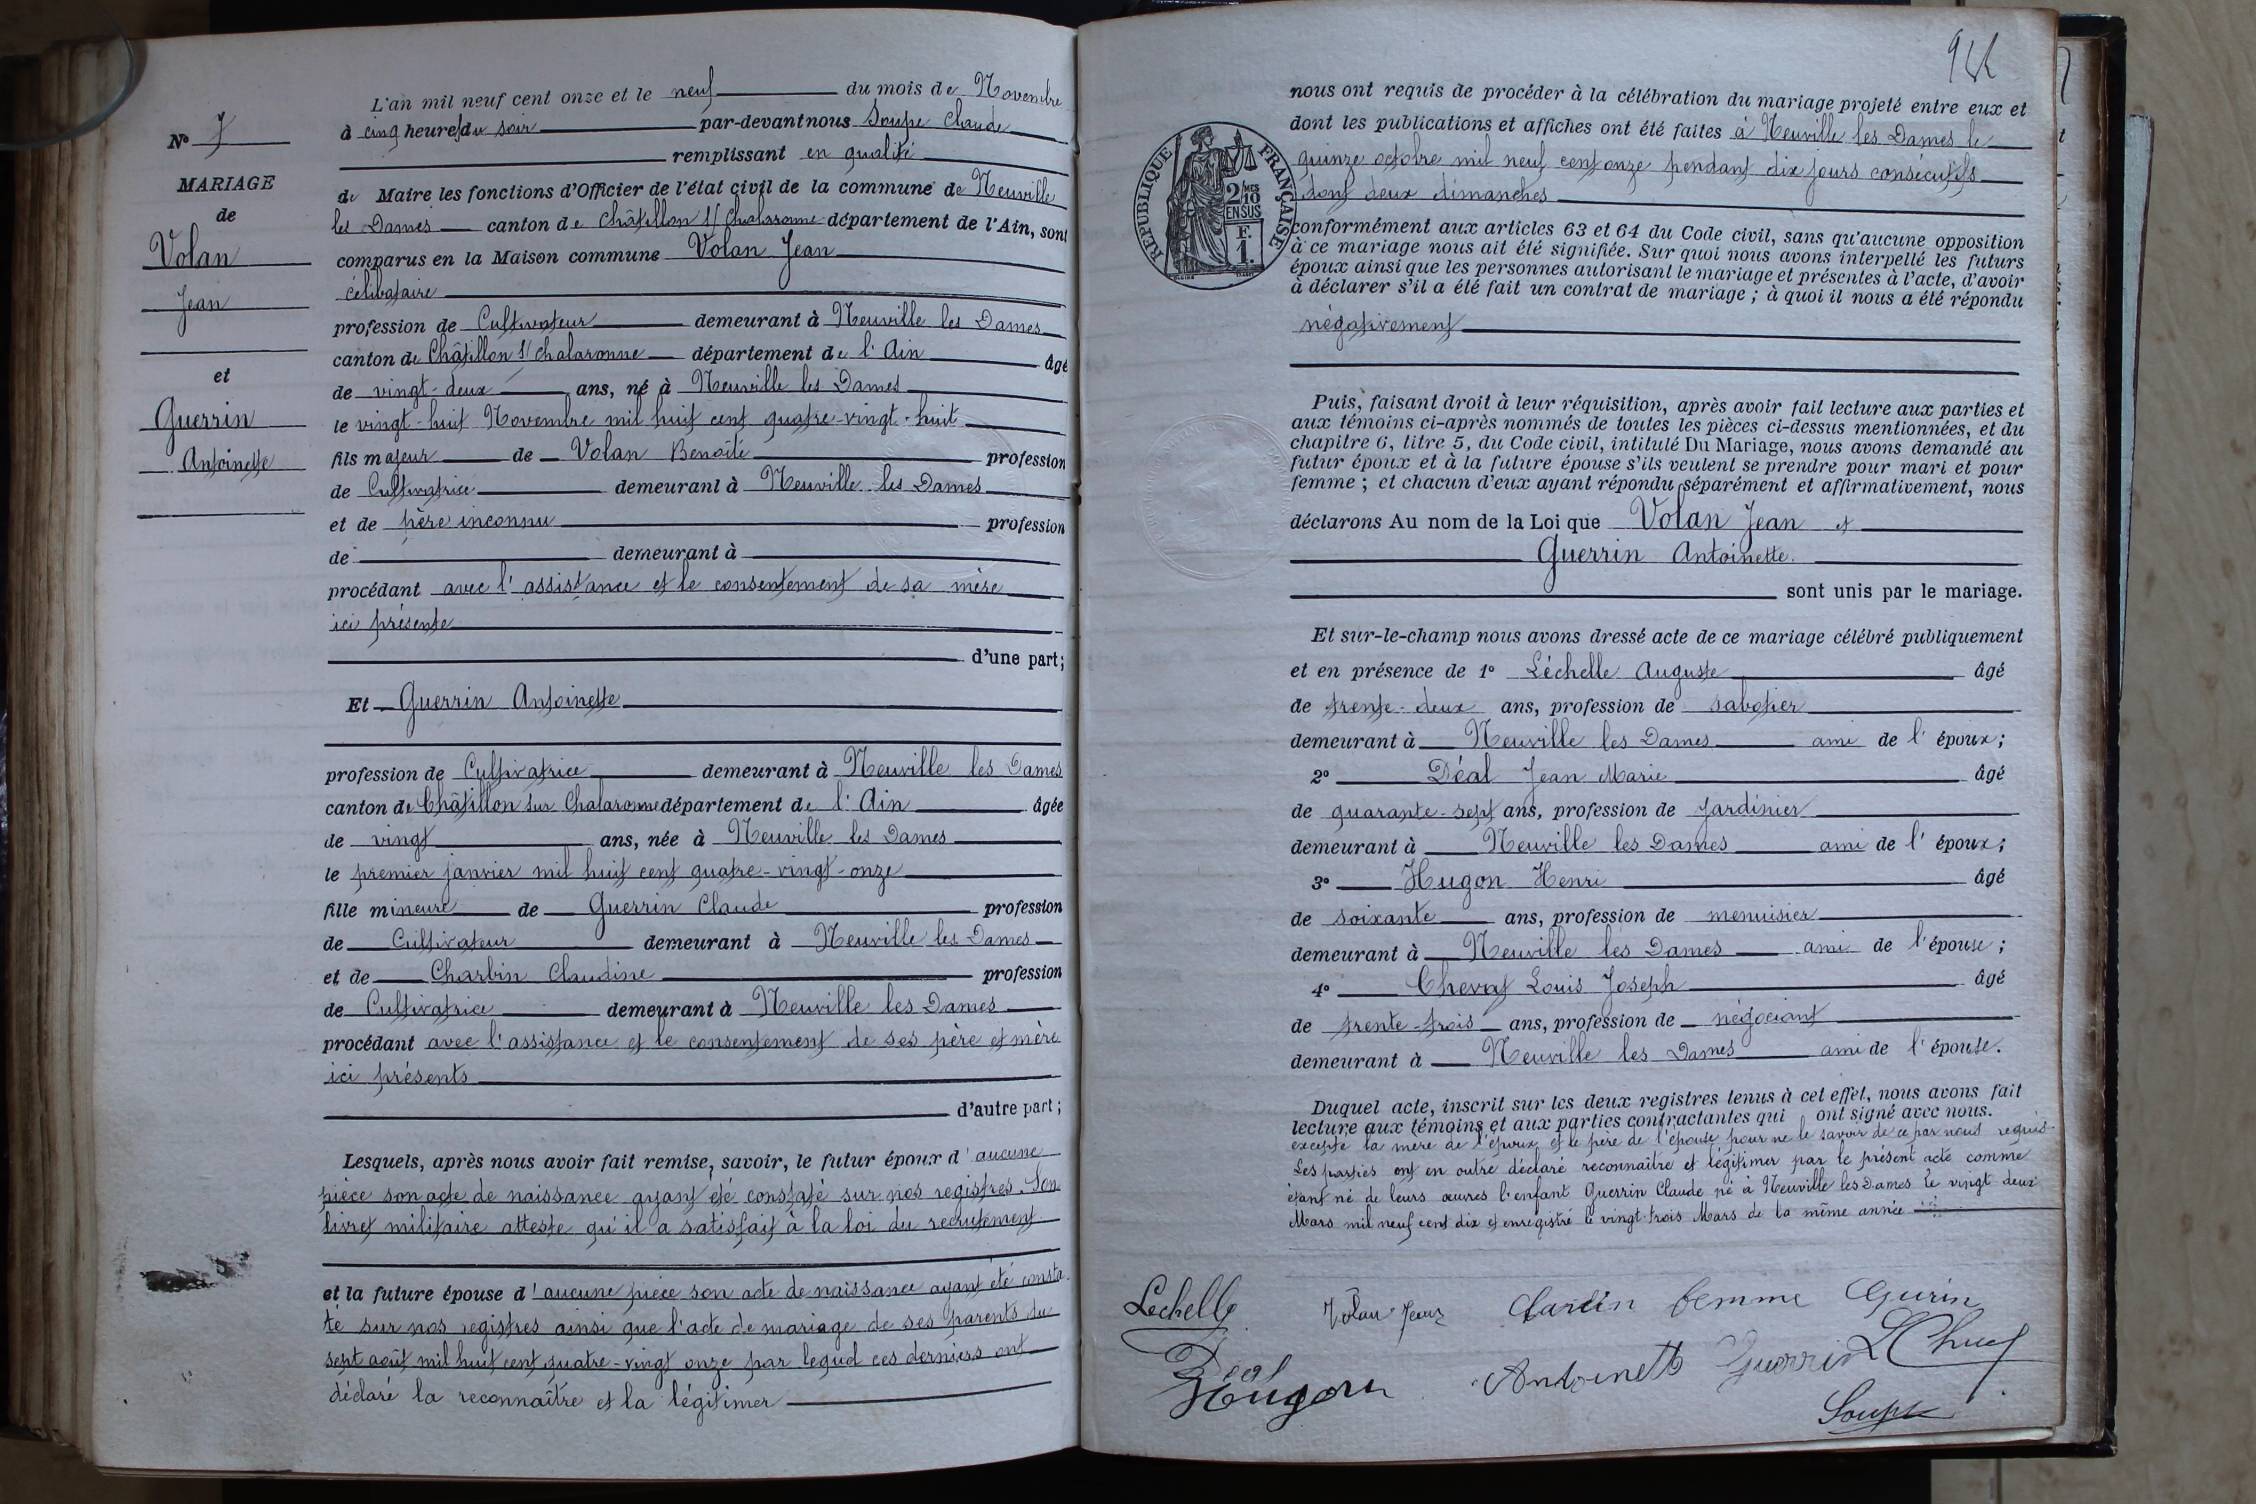 N° 7
MARIAGE
de
Volan
Jean
et
Guerrin
Antoinette
L'an mil neuf cent onze et le neuf du mois de Novembre
à cinq heures du soir par-devant nous Soupe Claude
remplissant en qualité
de Maire les fonctions d'Officier de l'état civil de la commune de Neuville
les Dames canton de Châtillon s/ Chalaronne département de l'Ain, sont
comparus en la Maison commune Volan Jean
célibataire
profession de Cultivateur demeurant à Neuville les Dames
canton de Châtillon s/ Chalaronne département de l'Ain âgé
de vingt-deux ans, né à Neuville les Dames
le vingt-huit Novembre mil huit cent quatre-vingt-huit
fils majeur de Volan Benoîte profession
de Cultivatrice demeurant à Neuville les Dames
et de père inconnu profession
de demeurant à
procédant avec l'assistance et le consentement de sa mère
ici présente
d'une part;
Et Guerrin Antoinette
profession de Cultivatrice demeurant à Neuville les Dames
canton de Châtillon sur Chalaronne département de l'Ain âgée
de vingt ans, née à Neuville les Dames
le premier janvier mil huit cent quatre-vingt-onze
fille mineure de Guerrin Claude profession
de Cultivateur demeurant à Neuville les Dames
et de Charbin Claudine profession
de Cultivatrice demeurant à Neuville les Dames
procédant avec l'assistance et le consentement de ses père et mère
ici présents
d'autre part;
Lesquels, après nous avoir fait remise, savoir, le futur époux d'aucune
pièce son acte de naissance ayant été constaté sur nos registres. Son
livret militaire atteste qu'il a satisfait à la loi du recrutement
et la future épouse d'aucune pièce son acte de naissance ayant été consta
té sur nos registres ainsi que l'acte de mariage de ses parents du
sept août mil huit cent quatre-vingt onze par lequel ces derniers ont
déclaré la reconnaître et la légitimer
RÉPUBLIQUE FRANÇAISE
2/10 MES
EN SUS
F.
1.
nous ont requis de procéder à la célébration du mariage projeté entre eux et
dont les publications et affiches ont été faites à Neuville les Dames le
quinze octobre mil neuf cent onze pendant dix jours consécutifs
dont deux dimanches
conformément aux articles 63 et 64 du Code civil, sans qu'aucune opposition
à ce mariage nous ait été signifiée. Sur quoi nous avons interpellé les futurs
époux ainsi que les personnes autorisant le mariage et présentes à l'acte, d'avoir
à déclarer s'il a été fait un contrat de mariage; à quoi il nous a été répondu
négativement
Puis, faisant droit à leur réquisition, après avoir fait lecture aux parties et
aux témoins ci-après nommés de toutes les pièces ci-dessus mentionnées, et du
chapitre 6, titre 5, du Code civil, intitulé Du Mariage, nous avons demandé au
futur époux et à la future épouse s'ils veulent se prendre pour mari et pour
femme; et chacun d'eux ayant répondu séparément et affirmativement, nous
déclarons Au nom de la Loi que Volan Jean et
Guerrin Antoinette.
sont unis par le mariage.
Et sur-le-champ nous avons dressé acte de ce mariage célébré publiquement
et en présence de 1° Léchelle Auguste âgé
de trente-deux ans, profession de sabotier
demeurant à Neuville les Dames ami de l'époux;
2° Déal Jean Marie âgé
de quarante-sept ans, profession de jardinier
demeurant à Neuville les Dames ami de l'époux;
3° Hugon Henri âgé
de soixante ans, profession de menuisier
demeurant à Neuville les Dames ami de l'épouse;
4° Chevat Louis Joseph âgé
de trente-trois ans, profession de négociant
demeurant à Neuville les Dames ami de l'épouse.
Duquel acte, inscrit sur les deux registres tenus à cet effet, nous avons fait
lecture aux témoins et aux parties contractantes qui ont signé avec nous.
excepté la mère de l'époux et le père de l'épouse pour ne le savoir de ce par nous requis
Les parties ont en outre déclaré reconnaître et légitimer par le présent acte comme
étant né de leurs œuvres l'enfant Guerrin Claude né à Neuville les Dames le vingt deux
Mars mil neuf cent dix et enregistré le vingt-trois Mars de la même année
Léchelle
Volan Jean
femme Gurin
Déal
Hugon
Antoinette Guerrin
Soupe